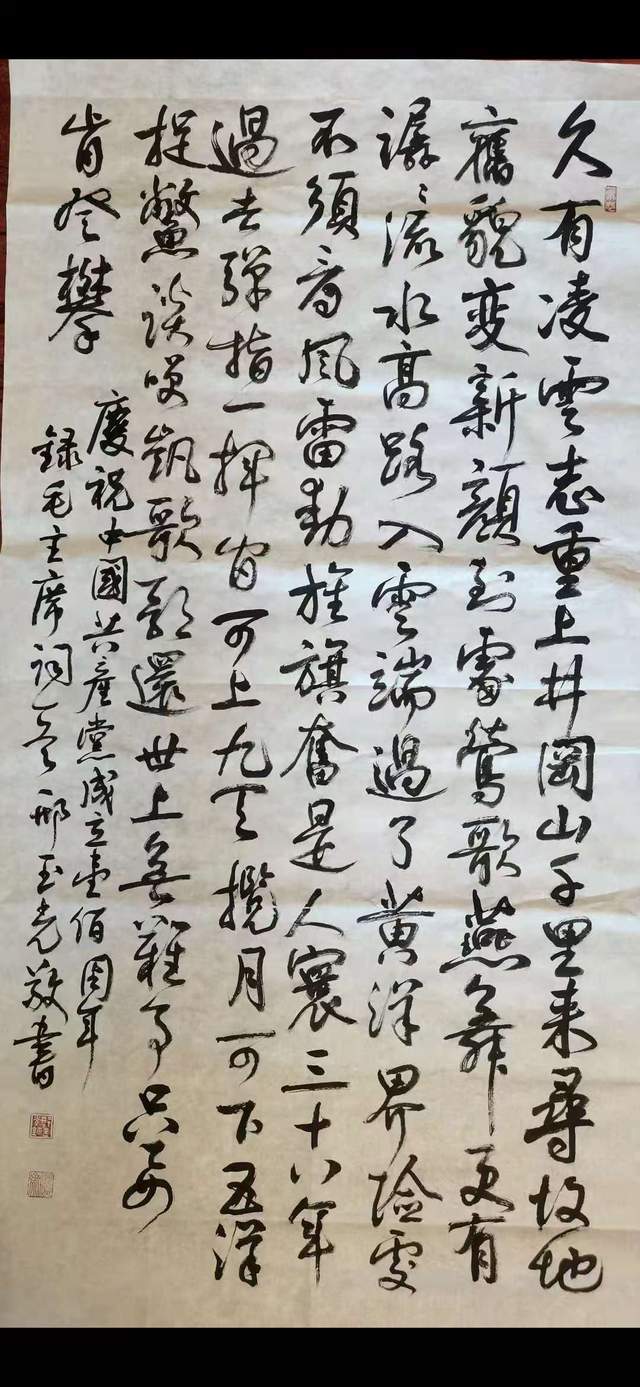 久有凌雲志重上井岡山千里来尋故地
舊貌变新顔到處鶯歌燕舞更有
潺〻流水高路入雲端過了黄洋界險處
不須看風雷動旌旗奮是人寰三十八年
過去彈指一揮间可上九天攬月可下五洋
捉鱉談笑凱歌還世上無難事只要
肯登攀
慶祝中國共産黨成立壹佰周年
錄毛主席詞一首邢玉敬書